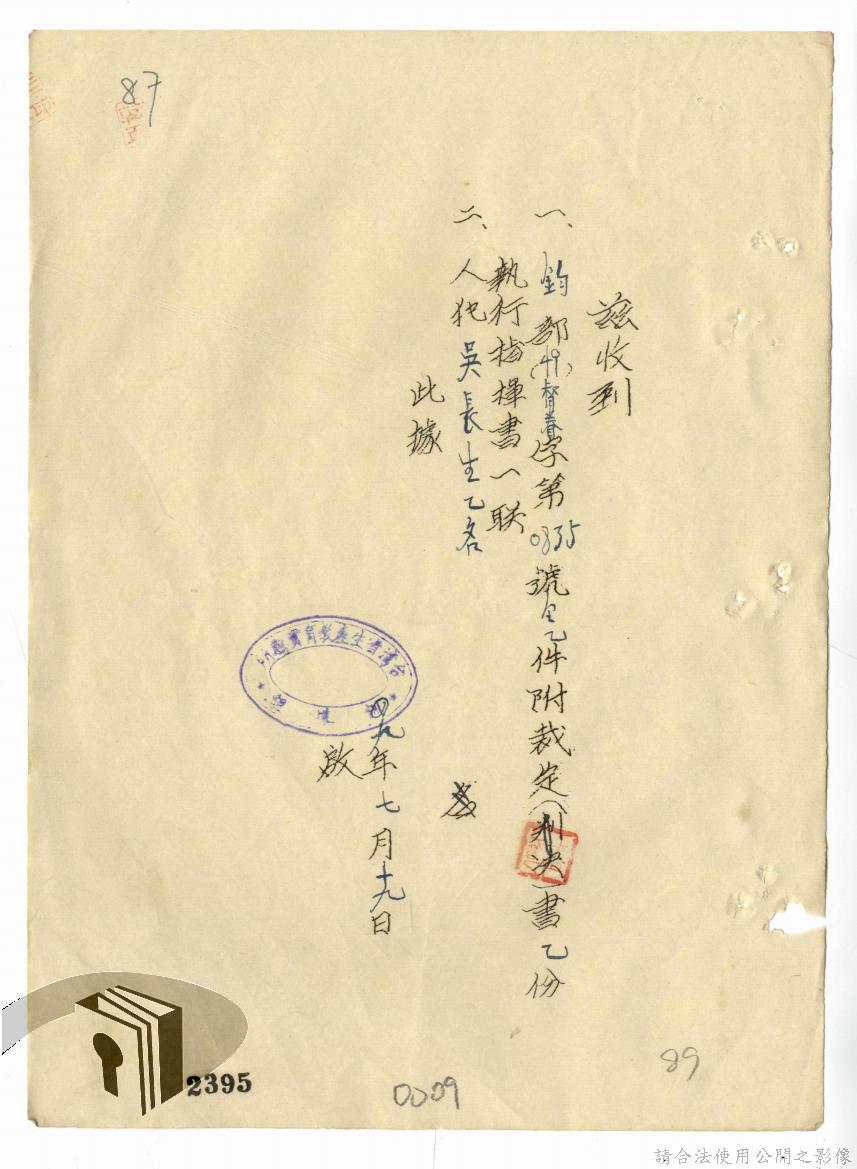 87
茲收到
一、鈞部(49)督書字第0835號令乙件附裁定(判決)書乙份
執行指揮書一联
二、人犯吳長生乙名
此據
台灣省生產教育實驗所
四九年七月十九日
啟
2395
0009
89
請合法使用公開之影像